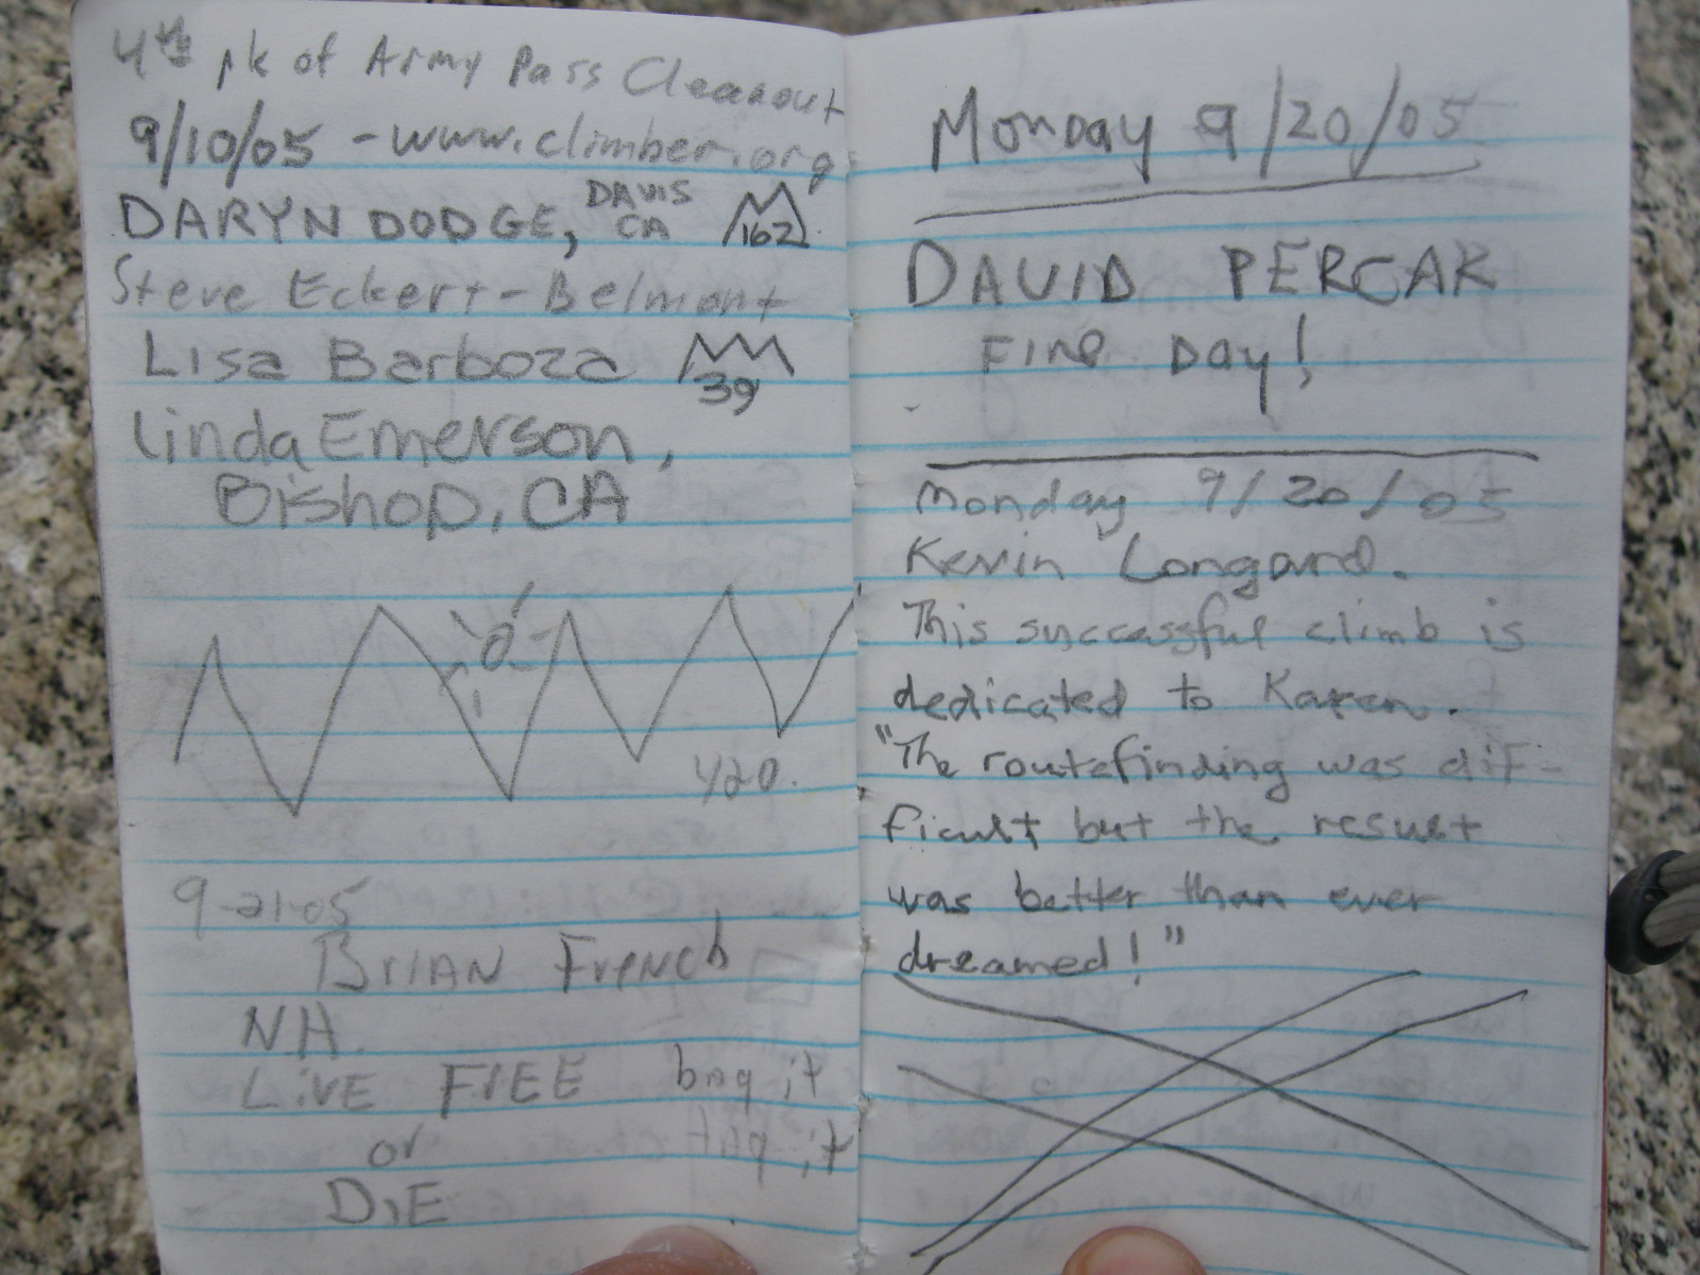 4th pk of Army Pass Cleanout
9/10/05 - www.climber.org
DARYN DODGE, DAVIS CA 162
Steve Eckert - Belmont
Lisa Barboza 39
Linda Emerson,
Bishop, CA
420.
9-21-05
BRIAN FrENCh
NH.
LiVE FREE bag it
or
DiE
Monday 9/20/05
DAVID PERCAK
FINE DAY!
Monday 9/20/05
Kevin Longard.
This successful climb is
dedicated to Karen.
"The routefinding was dif-
ficult but the result
was better than ever
dreamed!"